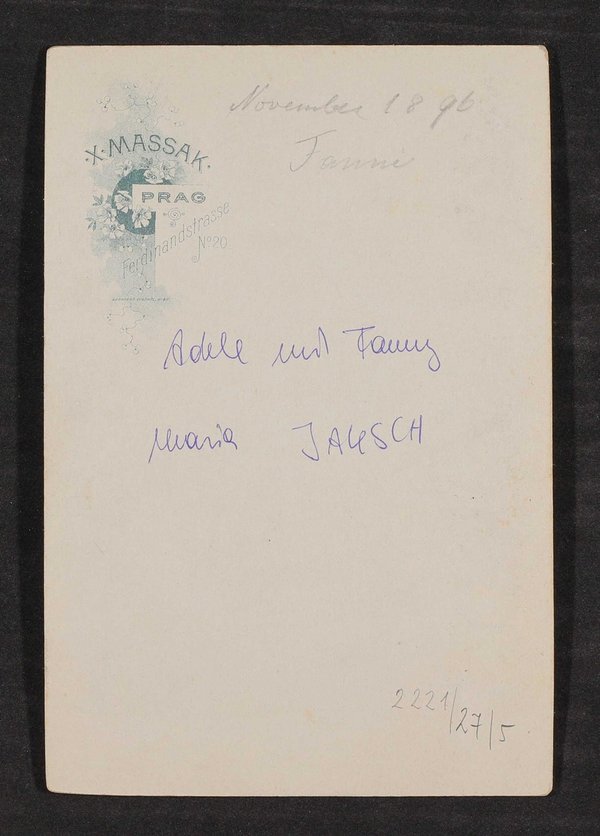 November 1896
Fanni
X. MASSAK.
PRAG
Ferdinandstrasse
No 20
Adele und Fanny
Maria JAKSCH
2221/27/5